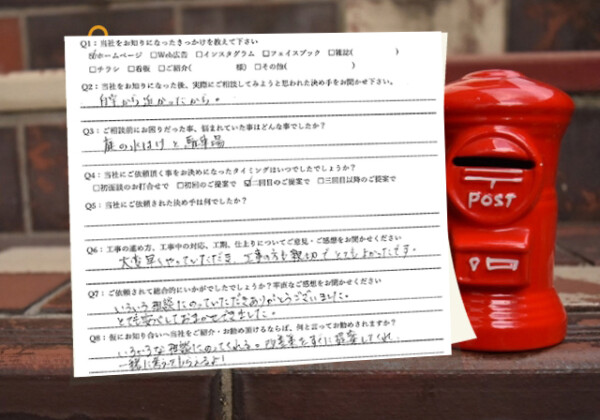 Q1：当社をお知りになったきっかけを教えて下さい
☑ホームページ □Web広告 □インスタグラム □フェイスブック □雑誌( )
□チラシ □看板 □ご紹介( 様) □その他( )
Q2：当社をお知りになった後、実際にご相談してみようと思われた決め手をお聞かせ下さい。
自宅から近かったから。
Q3：ご相談前にお困りだった事、悩まれていた事はどんな事でしたか？
庭の水はけと駐車場
Q4：当社にご依頼頂く事をお決めになったタイミングはいつでしたでしょうか？
□初面談のお打合せで □初回のご提案で ☑二回目のご提案で □三回目以降のご提案で
Q5：当社にご依頼された決め手は何でしたか？
Q6：工事の進め方、工事中の対応、工期、仕上りについてご意見・ご感想をお聞かせください
大変早くやっていただき、工事の方も親切でとてもよかったです。
Q7：ご依頼されて総合的にいかがでしたでしょうか？率直なご感想をお聞かせください
いろいろ相談にのっていただきありがとうございました。
とても安心しておまかせできました。
Q8：仮にお知り合いへ当社をご紹介・お勧め頂けるならば、何と言ってお勧めされますか？
いろいろな相談にのってくれる。
一緒に考えてもらえるよ！
POST